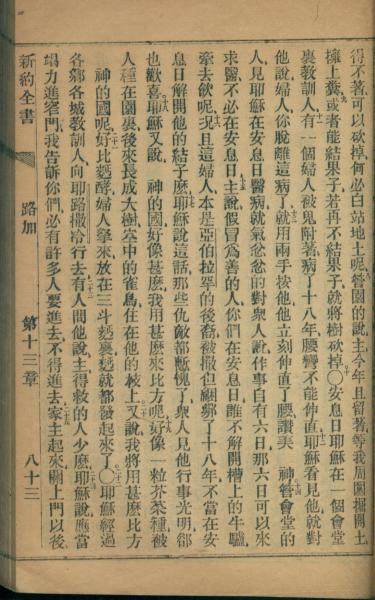 得不著、可以砍掉、何必白站地土呢、管園的說、主今年且留著、等我周圍掘開土、
擁上糞、或者能結果子、若再不結果子、就將樹砍掉、〇安息日耶穌在一個會堂
裏教訓人、有一個婦人被鬼附著、病了十八年、腰彎不能伸直、耶穌看見他、就對
他說、婦人、你脫離這病了、就用兩手按他、他立刻伸直了腰、讚美　神、管會堂的
人、見耶穌在安息日醫病、就氣忿忿的對衆人說、作事自有六日、那六日可以來
求醫、不必在安息日、主說、假冒爲善的人、你們在安息日、誰不解開槽上的牛驢、
牽去飲呢、況且這婦人、本是亞伯拉罕的後裔、被撒但綑綁了十八年、不當在安
息日解開他的結子麽、耶穌說這話、那些仇敵都慚愧了、衆人見他行事光明、卻
也歡喜、耶穌又說、　神的國、好像甚麽、我用甚麽來比方呢、好像一粒芥菜種、被
人種在園裏、後來長成大樹、空中的雀鳥、住在他的枝上、又說、我將用甚麽比方
　神的國呢、好比麪酵、婦人拏來放在三斗麪裏、麪就都發起來了、〇耶穌經過
各鄉各城教訓人、向耶路撒冷行去、有人問他說、主、得救的人少麽、耶穌說、應當
竭力進窄門、我告訴你們、必有許多人要進去、不得進去、家主起來關上門以後、
新約全書　路加　第十三章　八十三